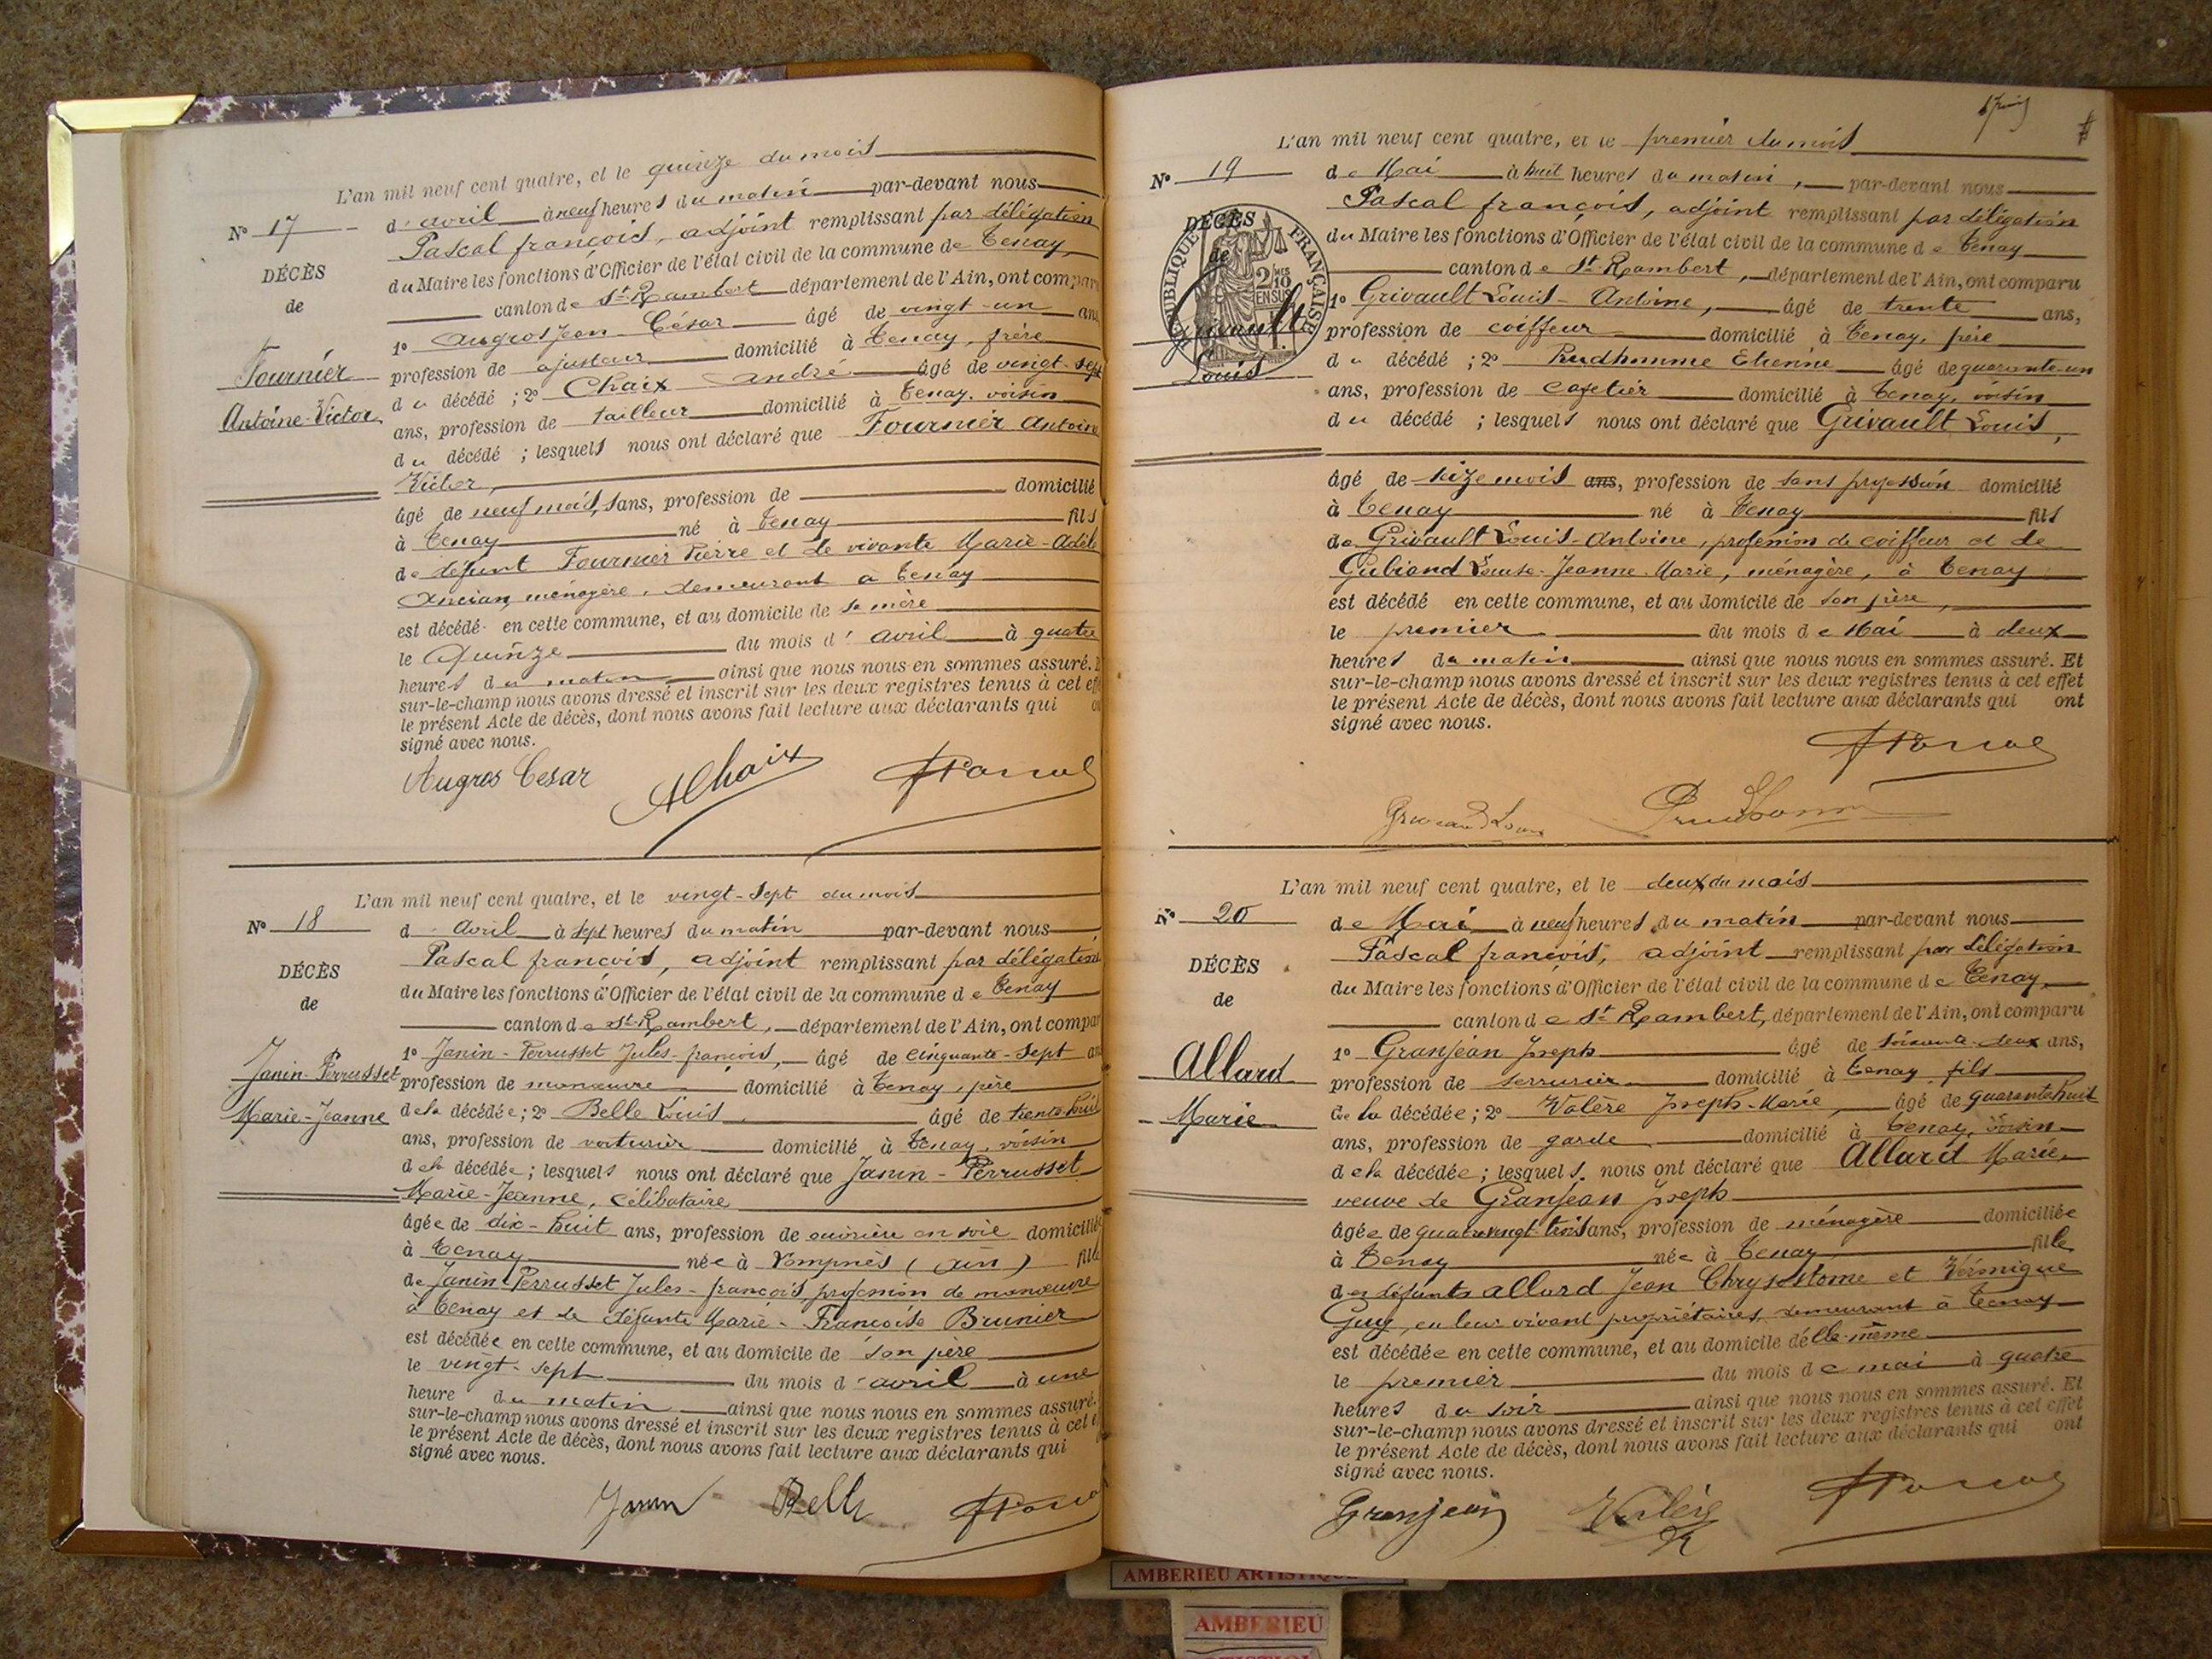 L'an mil neuf cent quatre, et le quinze du mois
N° 17
d'avril à neuf heures du matin par-devant nous
Pascal françois, adjoint remplissant par délégation
DÉCÈS
du Maire les fonctions d'Officier de l'état civil de la commune de Tenay,
de
canton de St Rambert département de l'Ain, ont compar
1° Augros Jean César âgé de vingt-un ans
Fournier
profession de ajusteur domicilié à Tenay, frère
du décédé ; 2° Chaix andré âgé de vingt-sept
Antoine-Victor
ans, profession de tailleur domicilié à Tenay, voisin
du décédé ; lesquels nous ont déclaré que Fournier Antoine
Victor,
âgé de neuf mois, sans, profession de domicilié
à Tenay né à Tenay fils
de défunt Fournier Pierre et de vivante Marie-Adèle
Ancian, ménagère, demeurant à Tenay
est décédé en cette commune, et au domicile de sa mère
le Quinze du mois d'avril à quatre
heures du matin ainsi que nous nous en sommes assuré.
sur-le-champ nous avons dressé et inscrit sur les deux registres tenus à cet eff
le présent Acte de décès, dont nous avons fait lecture aux déclarants qui
signé avec nous.
Augros Cesar AChaix fPascal
L'an mil neuf cent quatre, et le vingt-sept du mois
N° 18
d'avril à sept heures du matin par-devant nous
Pascal françois, adjoint remplissant par délégation
DÉCÈS
du Maire les fonctions d'Officier de l'état civil de la commune de Tenay
de
canton de St Rambert, département de l'Ain, ont compar
1° Janin-Perrusset Jules-françois, âgé de cinquante-sept an
Janin-Perrusset
profession de manœuvre domicilié à Tenay, père
Marie-Jeanne
de la décédée ; 2° Belle Louis âgé de trente-huit
ans, profession de voiturier domicilié à Tenay, voisin
de la décédée ; lesquels nous ont déclaré que Janin-Perrusset
Marie-Jeanne, célibataire
âgée de dix-huit ans, profession de ouvrière en soie domiciliée
à Tenay née à Rompnès (Ain) fille
de Janin-Perrusset Jules-françois, profession de manœuvre
à Tenay et de défunte Marie-Françoise Brunier
est décédée en cette commune, et au domicile de son père
le vingt-sept du mois d'avril à une
heure du matin ainsi que nous nous en sommes assuré.
sur-le-champ nous avons dressé et inscrit sur les deux registres tenus à cet
le présent Acte de décès, dont nous avons fait lecture aux déclarants qui
signé avec nous.
Janin Belle fPascal
L'an mil neuf cent quatre, et le premier du mois
N° 19
de Mai à huit heures du matin, par-devant nous
Pascal françois, adjoint remplissant par délégation
DÉCÈS
du Maire les fonctions d'Officier de l'état civil de la commune de Tenay
de
canton de St Rambert, département de l'Ain, ont comparu
RÉPUBLIQUE FRANÇAISE
2/10 EN SUS
1° Grivault Louis-Antoine, âgé de trente ans,
Grivault
profession de coiffeur domicilié à Tenay, père
du décédé ; 2° Prudhomme Etienne âgé de quarante-un
Louis
ans, profession de cafetier domicilié à Tenay, voisin
du décédé ; lesquels nous ont déclaré que Grivault Louis,
âgé de seize mois ans, profession de sans profession domicilié
à Tenay né à Tenay fils
de Grivault Louis-Antoine, profession de coiffeur et de
Gubiand Louise-Jeanne-Marie, ménagère, à Tenay
est décédé en cette commune, et au domicile de son père,
le premier du mois de Mai à deux
heures du matin ainsi que nous nous en sommes assuré. Et
sur-le-champ nous avons dressé et inscrit sur les deux registres tenus à cet effet
le présent Acte de décès, dont nous avons fait lecture aux déclarants qui ont
signé avec nous.
fPascal
L'an mil neuf cent quatre, et le deux du mois
N° 20
de Mai à neuf heures du matin par-devant nous
Pascal françois, adjoint remplissant par délégation
DÉCÈS
du Maire les fonctions d'Officier de l'état civil de la commune de Tenay,
de
canton de St Rambert, département de l'Ain, ont comparu
Allard
1° Granjean Joseph âgé de soixante-deux ans,
profession de serrurier domicilié à Tenay, fils
Marie
de la décédée ; 2° Valère Joseph-Marie, âgé de quarante huit
ans, profession de garde domicilié à Tenay, voisin
de la décédée ; lesquels nous ont déclaré que Allard Marie,
veuve de Granjean Joseph
âgée de quatre vingt-trois ans, profession de ménagère domiciliée
à Tenay née à Tenay fille
des défunts allard Jean Chrysostome et Véronique
Guy, en leur vivant propriétaires, demeurant à Tenay
est décédée en cette commune, et au domicile d'elle-même
le premier du mois de mai à quatre
heures du soir ainsi que nous nous en sommes assuré. Et
sur-le-champ nous avons dressé et inscrit sur les deux registres tenus à cet effet
le présent Acte de décès, dont nous avons fait lecture aux déclarants qui ont
signé avec nous.
Granjean Valère fPascal
AMBERIEU ARTISTIQUE
AMBERIEU